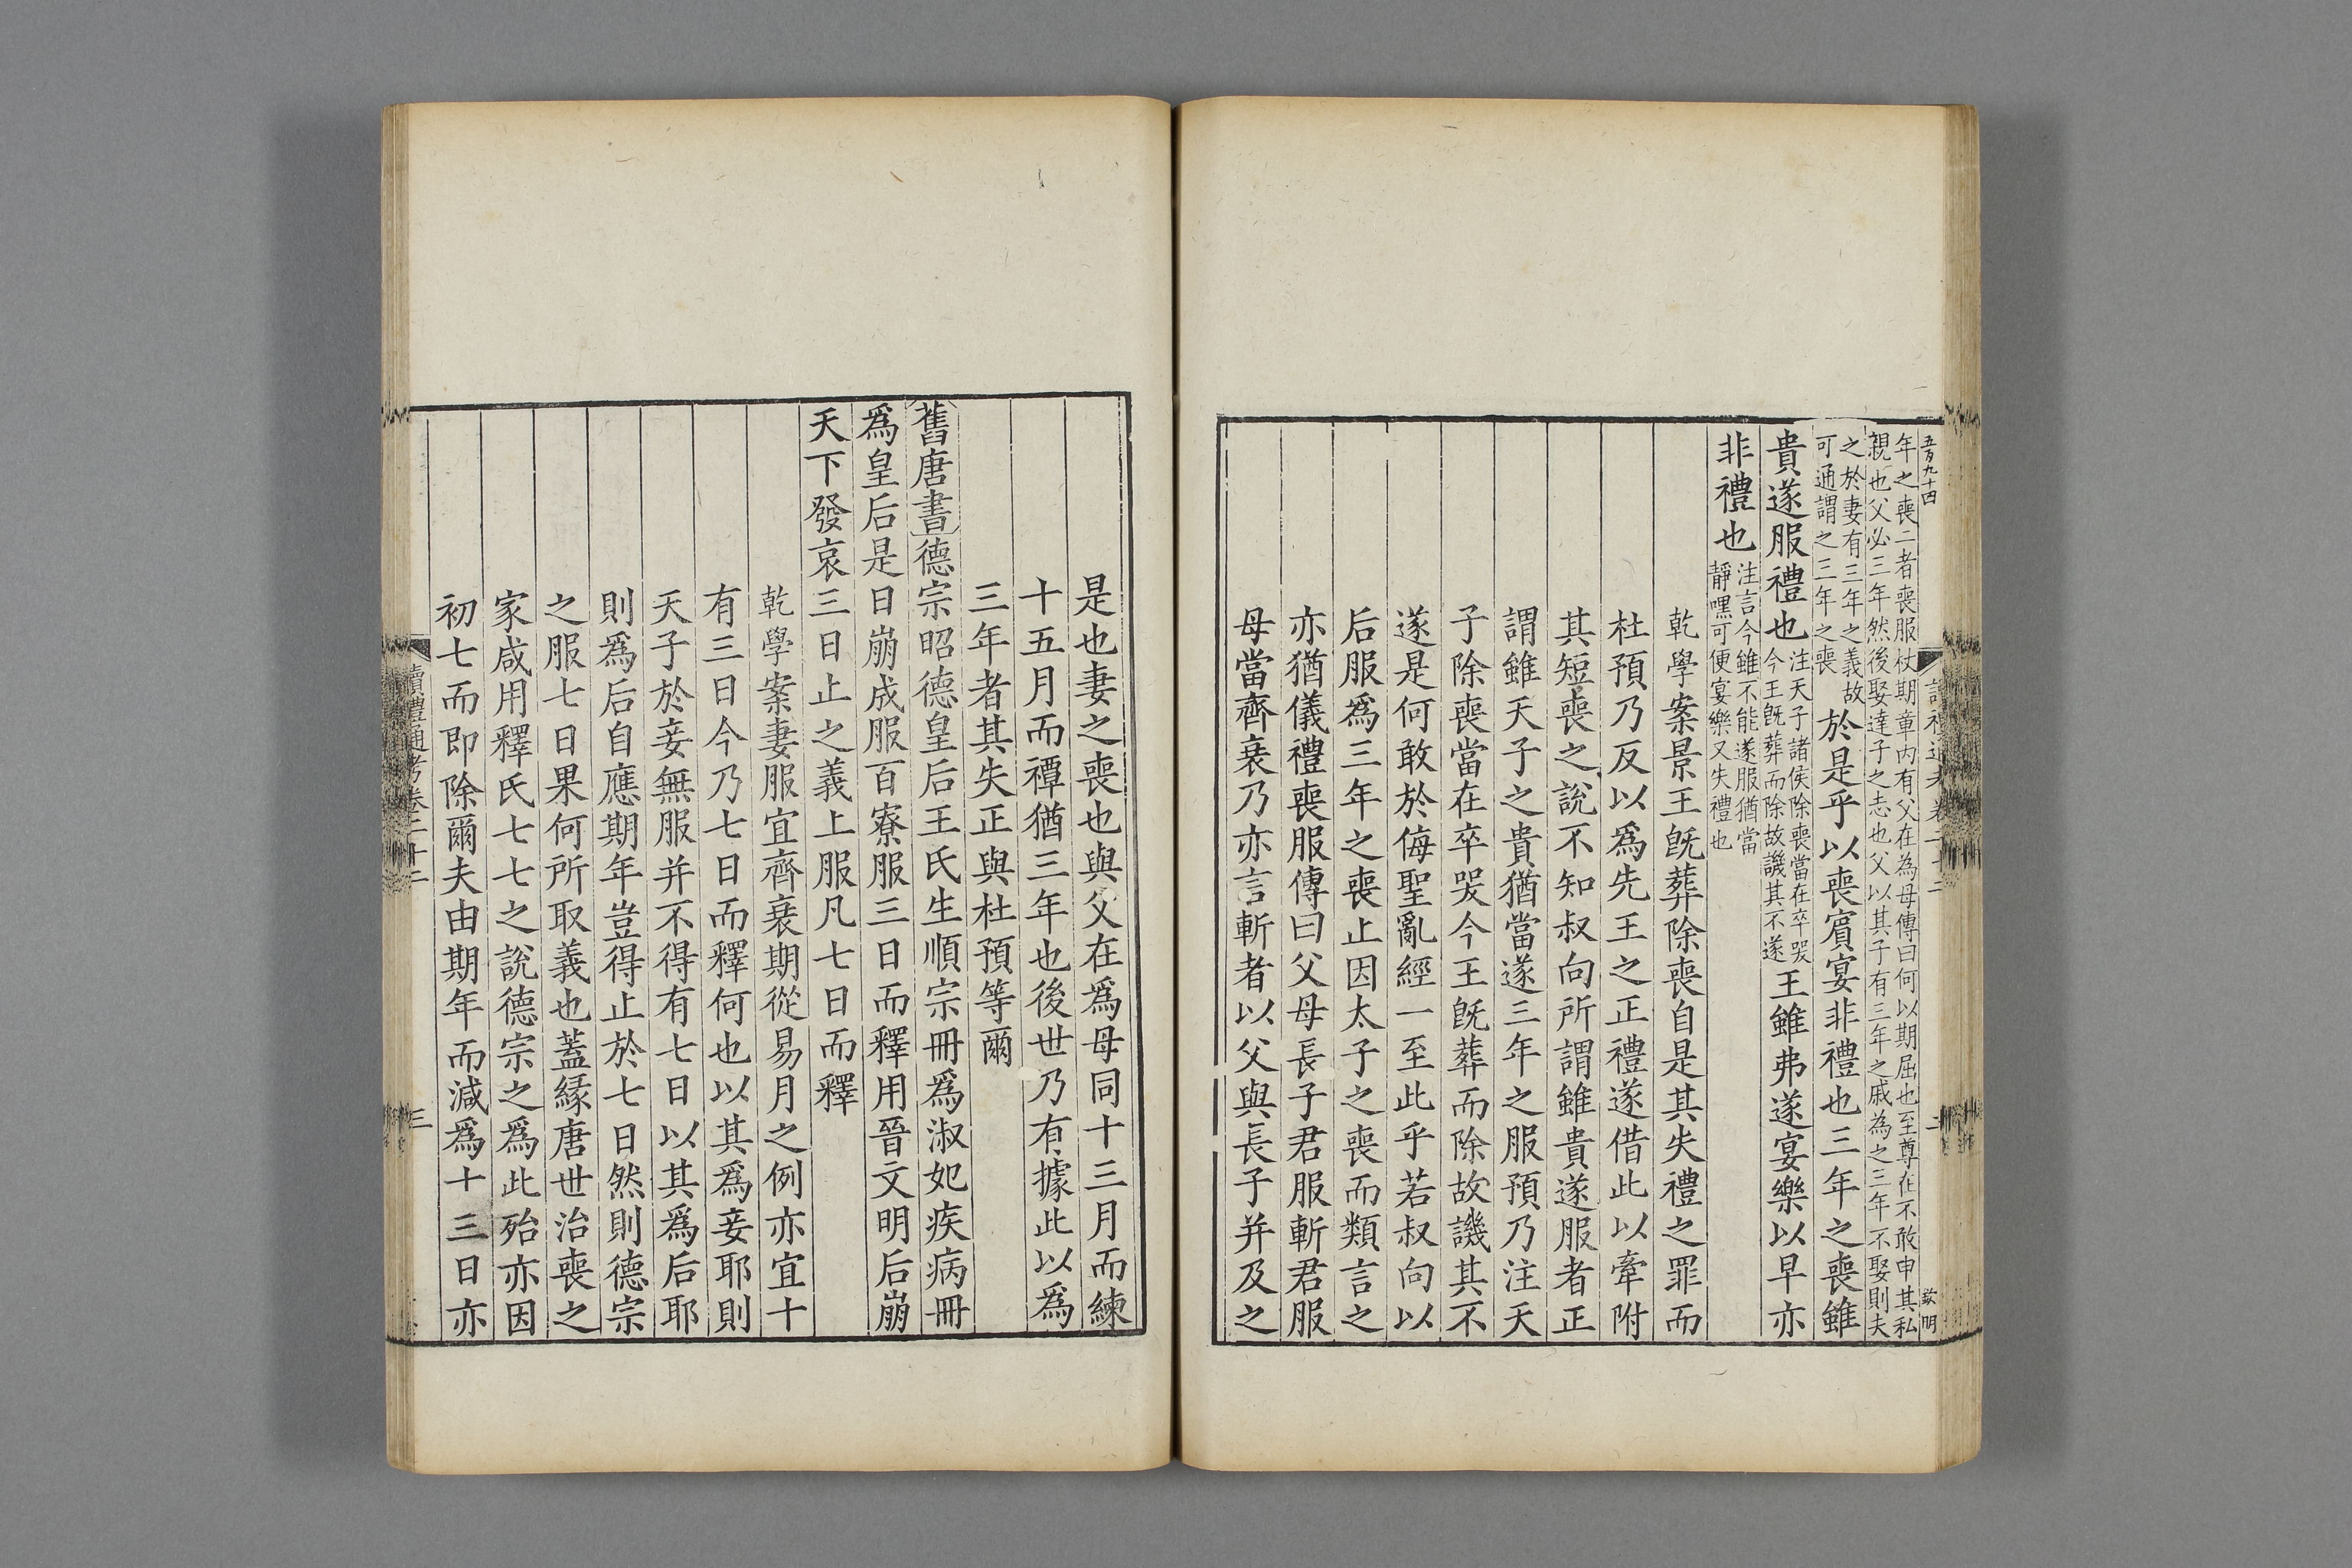 五百九十四
讀禮通考卷二十二
二
欽明
年之喪二者喪服杖期章內有父在為母傳曰何以期屈也至尊在不敢申其私
親也父必三年然後娶達子之志也父以其子有三年之戚為之三年不娶則夫
之於妻有三年之義故
可通謂之三年之喪
於是乎以喪賓宴非禮也三年之喪雖
貴遂服禮也
注天子諸侯除喪當在卒哭
今王旣葬而除故譏其不遂
王雖弗遂宴樂以早亦
非禮也
注言今雖不能遂服猶當
靜嘿可便宴樂又失禮也
乾學案景王旣葬除喪自是其失禮之罪而
杜預乃反以爲先王之正禮遂借此以牽附
其短喪之說不知叔向所謂雖貴遂服者正
謂雖天子之貴猶當遂三年之服預乃注天
子除喪當在卒哭今王旣葬而除故譏其不
遂是何敢於侮聖亂經一至此乎若叔向以
后服爲三年之喪止因太子之喪而類言之
亦猶儀禮喪服傳曰父母長子君服斬君服
母當齊衰乃亦言斬者以父與長子并及之
是也妻之喪也與父在爲母同十三月而練
十五月而禫猶三年也後世乃有據此以爲
三年者其失正與杜預等爾
舊唐書德宗昭德皇后王氏生順宗冊爲淑妃疾病冊
爲皇后是日崩成服百寮服三日而釋用晉文明后崩
天下發哀三日止之義上服凡七日而釋
乾學案妻服宜齊衰期從易月之例亦宜十
有三日今乃七日而釋何也以其爲妾耶則
天子於妾無服并不得有七日以其爲后耶
則爲后自應期年豈得止於七日然則德宗
之服七日果何所取義也蓋緣唐世治喪之
家咸用釋氏七七之說德宗之爲此殆亦因
初七而即除爾夫由期年而減爲十三日亦
讀禮通考卷二十二
三